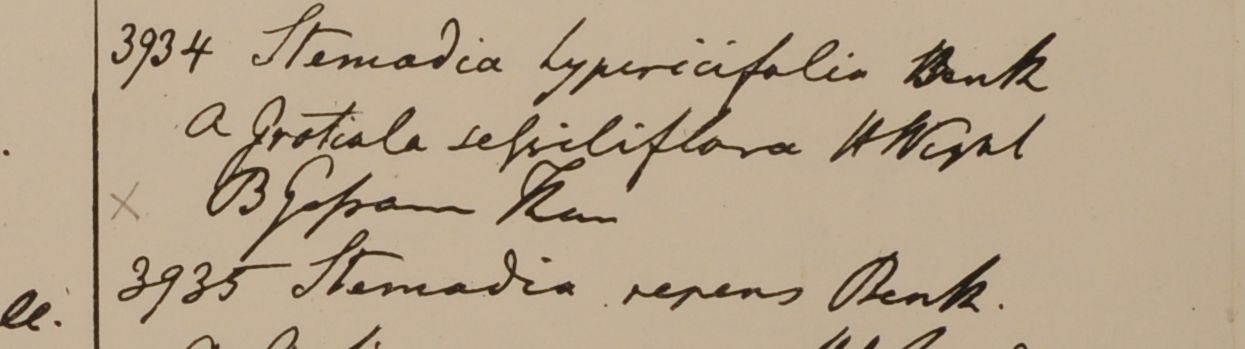 3934 Stemodia hypericifolia Benth
a Gratiola sessiliflora H Wight
B Gossam Than
ll.
3935 Stemodia repens Benth.